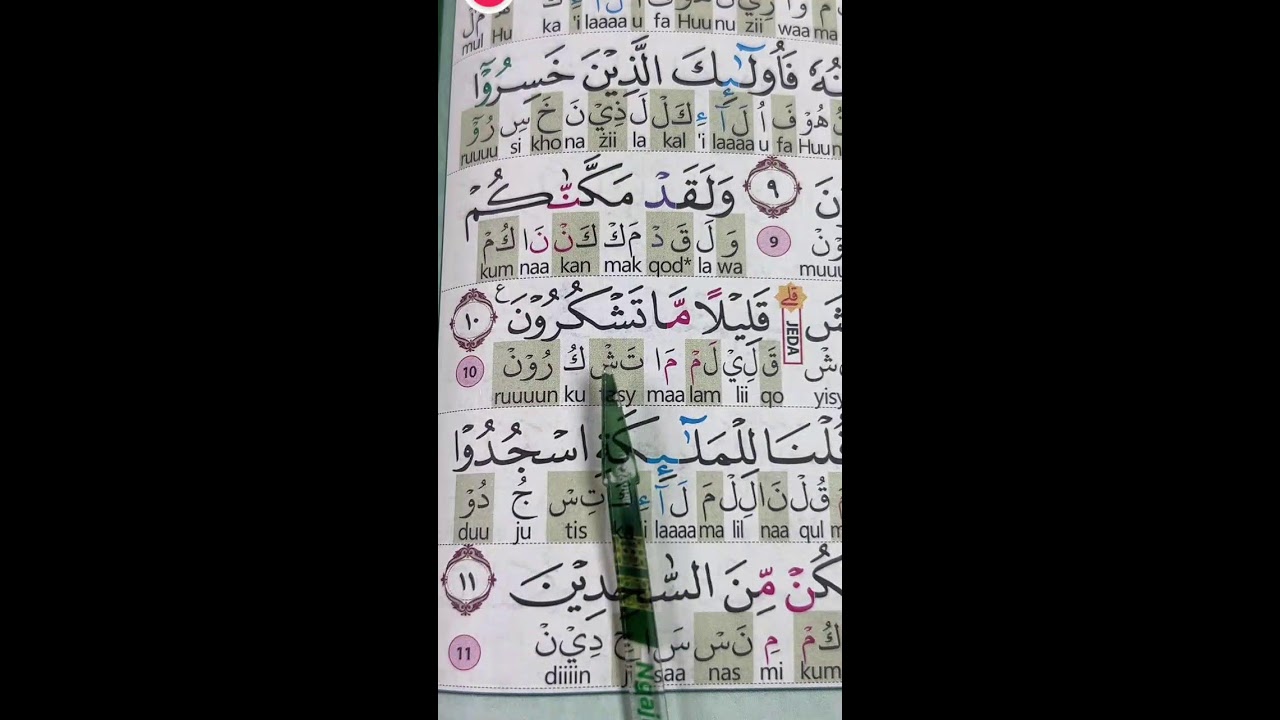 ka 'i laaaa u fa Huu nu zii waa ma
mul Hu
فَاُولٰۤىِٕكَ الَّذِيْنَ خَسِرُوْٓا
هُوْ فَ اُ لَآ ءِ كَلْ لَ ذِيْ نَ خَ سِ رُوْٓ
ruuuu si kho na żii la kal 'i laaaa u fa Huu n
٩ وَلَقَدْ مَكَّنّٰكُمْ
9 وَ لَ قَ دْ مَ كْ كَ نْ نَ ا كُمْ
kum naa kan mak qod* la wa muuu
قلے قَلِيْلًا مَّا تَشْكُرُوْنَ ع ١٠
JEDA
شْ قَ لِيْ لَ مْ مَ ا تَ شْ كُ رُوْنْ 10
ruuuun ku tasy maa lam lii qo yisy
قُلْنَا لِلْمَلٰۤىِٕكَةِ اسْجُدُوْا
قُلْ نَا لِلْ مَ لَآ ءِ تِسْ جُ دُوْ
duu ju tis i laaaa ma lil naa qul m
مِّنَ السّٰجِدِيْنَ ١١
كُ مْ مِ نَسْ سَ جِ دِيْنْ 11
diiiin ji saa nas mi kum
Ngaji